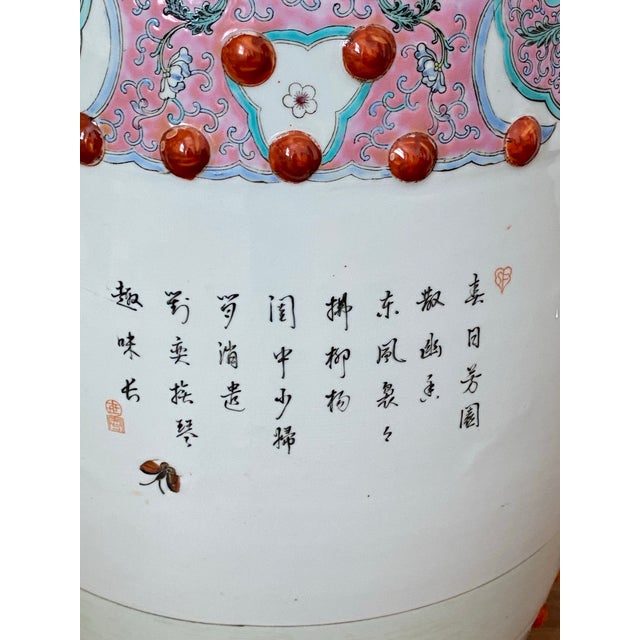 春日芳園
散幽香
东風裊々
拂柳楊
閨中少婦
習消遣
對奕撫琴
趣味长